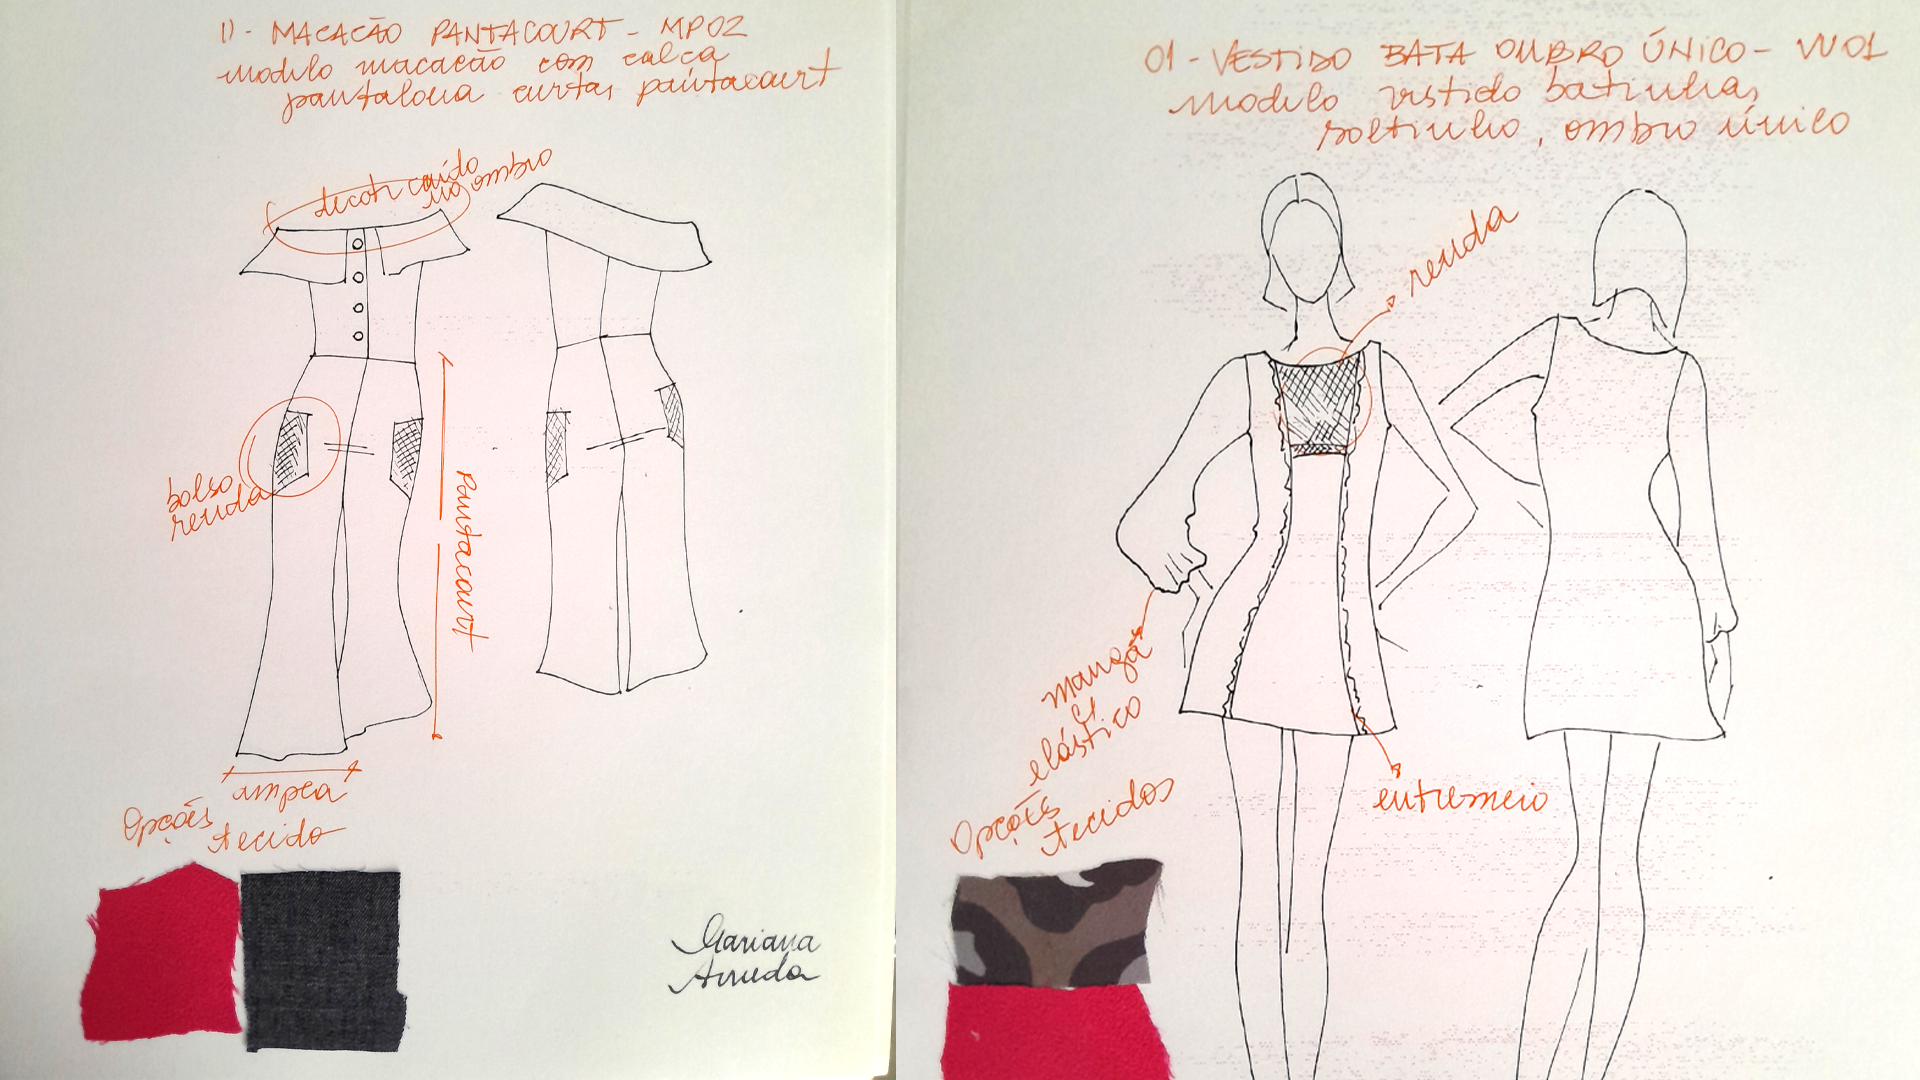 1) - MACACÃO PANTACOURT - MP02
modelo macacão com calça
pantalona curta, pantacourt
decote caído
no ombro
bolso
renda
pantacourt
ampla
Opções
tecido
Mariana
Arruda
01 - VESTIDO BATA OMBRO ÚNICO - VU01
modelo vestido batinha,
soltinho, ombro único
renda
manga
c/
elástico
entremeio
Opções
tecidos